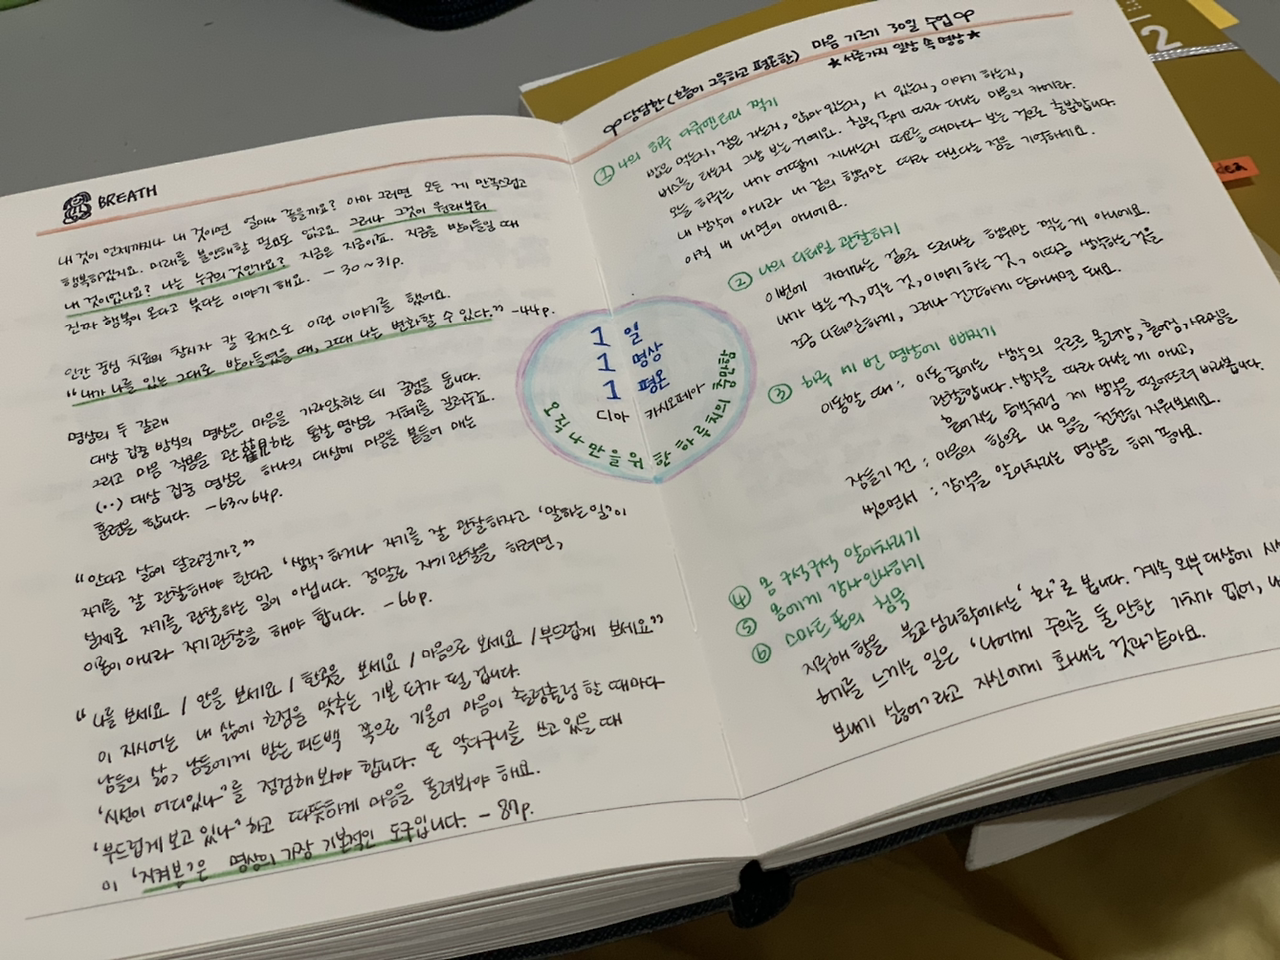 BREATH
내 것이 언제까지나 내 것이면 얼마나 좋을까요? 아마 그러면 모든 게 만족스럽고
행복하겠지요. 미래를 불안해할 필요도 없고요. 그러나 그것이 원래부터
내 것이었나요? 나는 누구의 것인가요? 지금은 지금이죠. 지금을 받아들일 때
진짜 행복이 온다고 붓다는 이야기 해요. - 30~31p.
인간 중심 치료의 창시자 칼 로저스도 이런 이야기를 했어요.
“내가 나를 있는 그대로 받아들였을 때, 그때 나는 변화할 수 있다.” -44p.
명상의 두 갈래
대상 집중 방식의 명상은 마음을 가라앉히는 데 중점을 둡니다.
그리고 마음 작용을 관찰하는 통찰 명상은 지혜를 길러주죠.
(··) 대상 집중 명상은 하나의 대상에 마음을 붙들어 매는
훈련을 합니다. -63~64p.
“안다고 삶이 달라질까?”
자기를 잘 관찰해야 한다고 '생각' 하거나 자기를 잘 관찰하자고 '말하는 일'이
실제로 자기를 관찰하는 일이 아닙니다. 정말로 자기 관찰을 하려면,
이론이 아니라 자기관찰을 해야 합니다. -66p.
“나를 보세요 / 안을 보세요 / 한곳을 보세요 / 마음으로 보세요 / 부드럽게 보세요”
이 지시어는 내 삶에 초점을 맞추는 기본 도구가 될 겁니다.
남들의 삶, 남들에게 받는 피드백 쪽으로 기울어 마음이 출렁출렁 할 때마다
'시선이 어디있나'를 점검해봐야 합니다. 또 악다구니를 쓰고 있을 때
'부드럽게 보고 있나'하고 따뜻하게 마음을 돌려봐야 해요.
이 '지켜봄'은 명상의 가장 기본적인 도구입니다. - 87p.
1일
1명상
1평온
디아 카시오페아
오직 나만을 위한 하루치의 충만함
당당한 (흐름이 그윽하고 평온한) 마음 기르기 30일 수업
★서른가지 일상 속 명상★
① 나의 하루 다큐멘터리 찍기
밥을 먹는지, 잠을 자는지, 앉아 있는지, 서 있는지, 이야기 하는지,
버스를 타는지 그냥 보는 거예요. 침묵 속에 따라 다니는 마음의 카메라.
오늘 하루는 내가 어떻게 지내는지 떠오를 때마다 보는 것으로 충분합니다.
내 생각이 아니라 내 겉의 행위만 따라 다닌다는 점을 기억하세요.
아직 내 내면이 아니에요.
② 나의 디테일 관찰하기
이번에 카메라는 겉으로 드러나는 행위만 찍는 게 아니에요.
내가 보는 것, 먹는 것, 이야기 하는 것, 이따금 생각하는 것을
좀 디테일하게, 그러나 건건하게 담아내면 돼요.
③ 하루 세 번 명상에 빠지기
이동할 때 : 이동 중에는 생각의 위로 올라감, 흩어짐, 사라짐을
관찰합니다. 생각을 따라 다니는 게 아니고,
흩어지는 승객처럼 제 생각을 떨어뜨려 바라봅니다.
잠들기 전 : 마음의 힘으로 내 몸을 천천히 지워보세요.
씻으면서 : 감각을 알아차리는 명상을 하기 좋아요.
④ 몸 구석구석 알아차리기
⑤ 몸에게 감사인사하기
⑥ 스마트폰의 침묵
지루해 함을 불교심리학에서는 '화'로 봅니다. 계속 외부 대상에 시
허기를 느끼는 일은 '나에게 주의를 둘 만한 가치가 없어, 내
보내기 싫어'라고 자신에게 화내는 것과 같아요.
2
dea